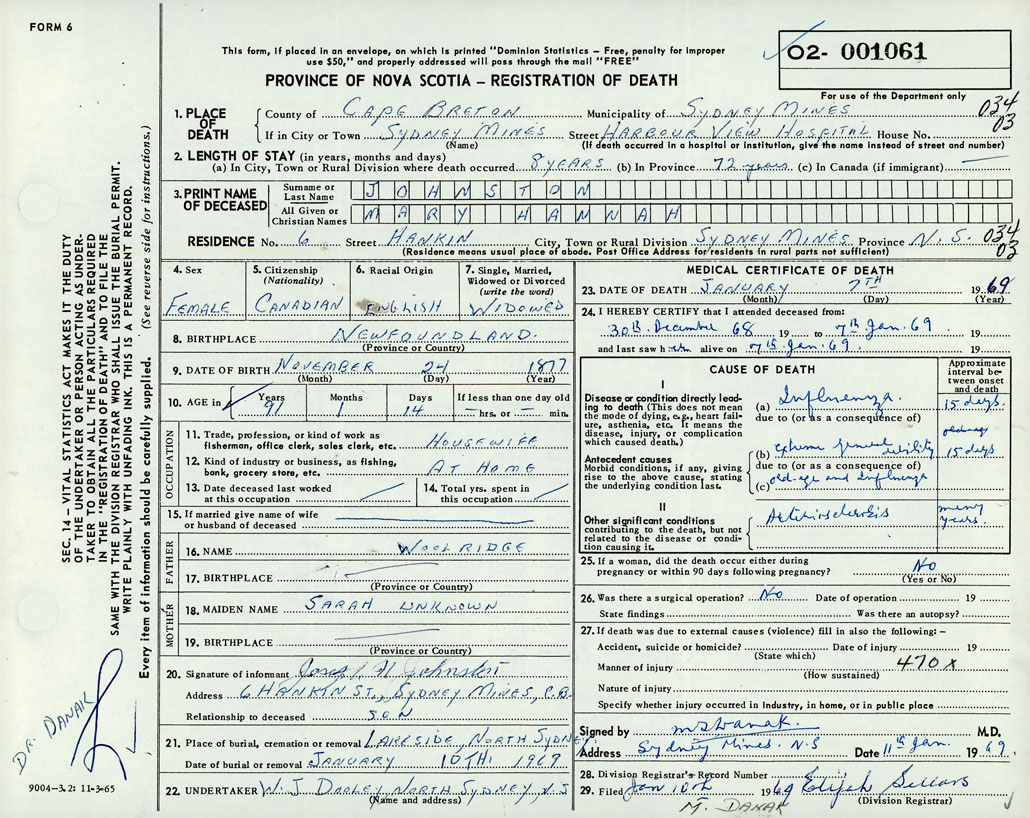 FORM 6
This form, if placed in an envelope, on which is printed "Dominion Statistics – Free, penalty for improper
use $50," and properly addressed will pass through the mail "FREE"
PROVINCE OF NOVA SCOTIA – REGISTRATION OF DEATH
02- 001061
For use of the Department only
1. PLACE OF DEATH County of CAPE BRETON Municipality of SYDNEY MINES 034
If in City or Town SYDNEY MINES Street HARBOUR VIEW HOSPITAL House No. 03
(Name) (If death occurred in a hospital or institution, give the name instead of street and number)
2. LENGTH OF STAY (in years, months and days)
(a) In City, Town or Rural Division where death occurred 8 YEARS (b) In Province 72 years (c) In Canada (if immigrant) —
3. PRINT NAME OF DECEASED
Surname or Last Name JOHNSTON
All Given or Christian Names MARY HANNAH
RESIDENCE No. 6 Street HANKIN City, Town or Rural Division SYDNEY MINES Province N.S. 034 03
(Residence means usual place of abode. Post Office Address for residents in rural parts not sufficient)
4. Sex
FEMALE
5. Citizenship (Nationality)
CANADIAN
6. Racial Origin
ENGLISH
7. Single, Married, Widowed or Divorced (write the word)
WIDOWED
8. BIRTHPLACE NEWFOUNDLAND.
(Province or Country)
9. DATE OF BIRTH NOVEMBER 24 1877
(Month) (Day) (Year)
10. AGE in Years Months Days If less than one day old
91 1 14 — hrs. or — min.
OCCUPATION
11. Trade, profession, or kind of work as fisherman, office clerk, sales clerk, etc. HOUSEWIFE
12. Kind of industry or business, as fishing, bank, grocery store, etc. AT HOME
13. Date deceased last worked at this occupation
14. Total yrs. spent in this occupation
15. If married give name of wife or husband of deceased
FATHER
16. NAME WOOLRIDGE
17. BIRTHPLACE
(Province or Country)
MOTHER
18. MAIDEN NAME SARAH UNKNOWN
19. BIRTHPLACE
(Province or Country)
20. Signature of informant Johnston
Address 6 HANKIN ST., SYDNEY MINES, C.B.
Relationship to deceased SON
21. Place of burial, cremation or removal LAKESIDE, NORTH SYDNEY.
Date of burial or removal JANUARY 10TH 1969
22. UNDERTAKER W. J. DOOLEY, NORTH SYDNEY, N.S
(Name and address)
MEDICAL CERTIFICATE OF DEATH
23. DATE OF DEATH JANUARY 7TH 1969
(Month) (Day) (Year)
24. I HEREBY CERTIFY that I attended deceased from:
30th December 68 19 to 7th Jan. 69 19
and last saw her alive on 7th Jan. 69. 19
CAUSE OF DEATH
Approximate interval between onset and death
I
Disease or condition directly leading to death (This does not mean the mode of dying, e.g., heart failure, asthenia, etc. It means the disease, injury, or complication which caused death.)
(a) Influenza. 15 days.
due to (or as a consequence of)
Antecedent causes
Morbid conditions, if any, giving rise to the above cause, stating the underlying condition last.
old-age
(b) Extreme general debility 15 days
due to (or as a consequence of)
(c) old-age and Influenza
II
Other significant conditions contributing to the death, but not related to the disease or condition causing it.
Arteriosclerosis many years.
25. If a woman, did the death occur either during pregnancy or within 90 days following pregnancy? NO
(Yes or No)
26. Was there a surgical operation? No Date of operation 19
State findings Was there an autopsy?
27. If death was due to external causes (violence) fill in also the following:–
Accident, suicide or homicide? Date of injury 19
(State which)
Manner of injury 470X
(How sustained)
Nature of injury
Specify whether injury occurred in industry, in home, or in public place
Signed by M.D.
Address Sydney Mines. N.S Date 11th Jan. 1969.
28. Division Registrar's Record Number
29. Filed Jan 10th 1969 Elijah Sellars
(Division Registrar)
M. DANAK
SEC. 14 – VITAL STATISTICS ACT MAKES IT THE DUTY
OF THE UNDERTAKER OR PERSON ACTING AS UNDER-
TAKER TO OBTAIN ALL THE PARTICULARS REQUIRED
IN THE "REGISTRATION OF DEATH" AND TO FILE THE
SAME WITH THE DIVISION REGISTRAR WHO SHALL ISSUE THE BURIAL PERMIT.
WRITE PLAINLY WITH UNFADING INK. THIS IS A PERMANENT RECORD.
Every item of information should be carefully supplied. (See reverse side for instructions.)
DR. DANAK
9004-3.2: 11-3-65